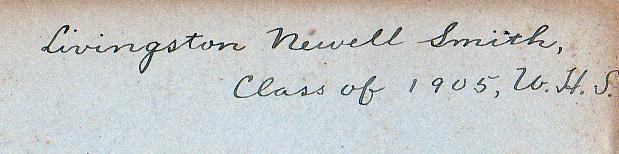 Livingston Newell Smith,
Class of 1905, W. H. S.